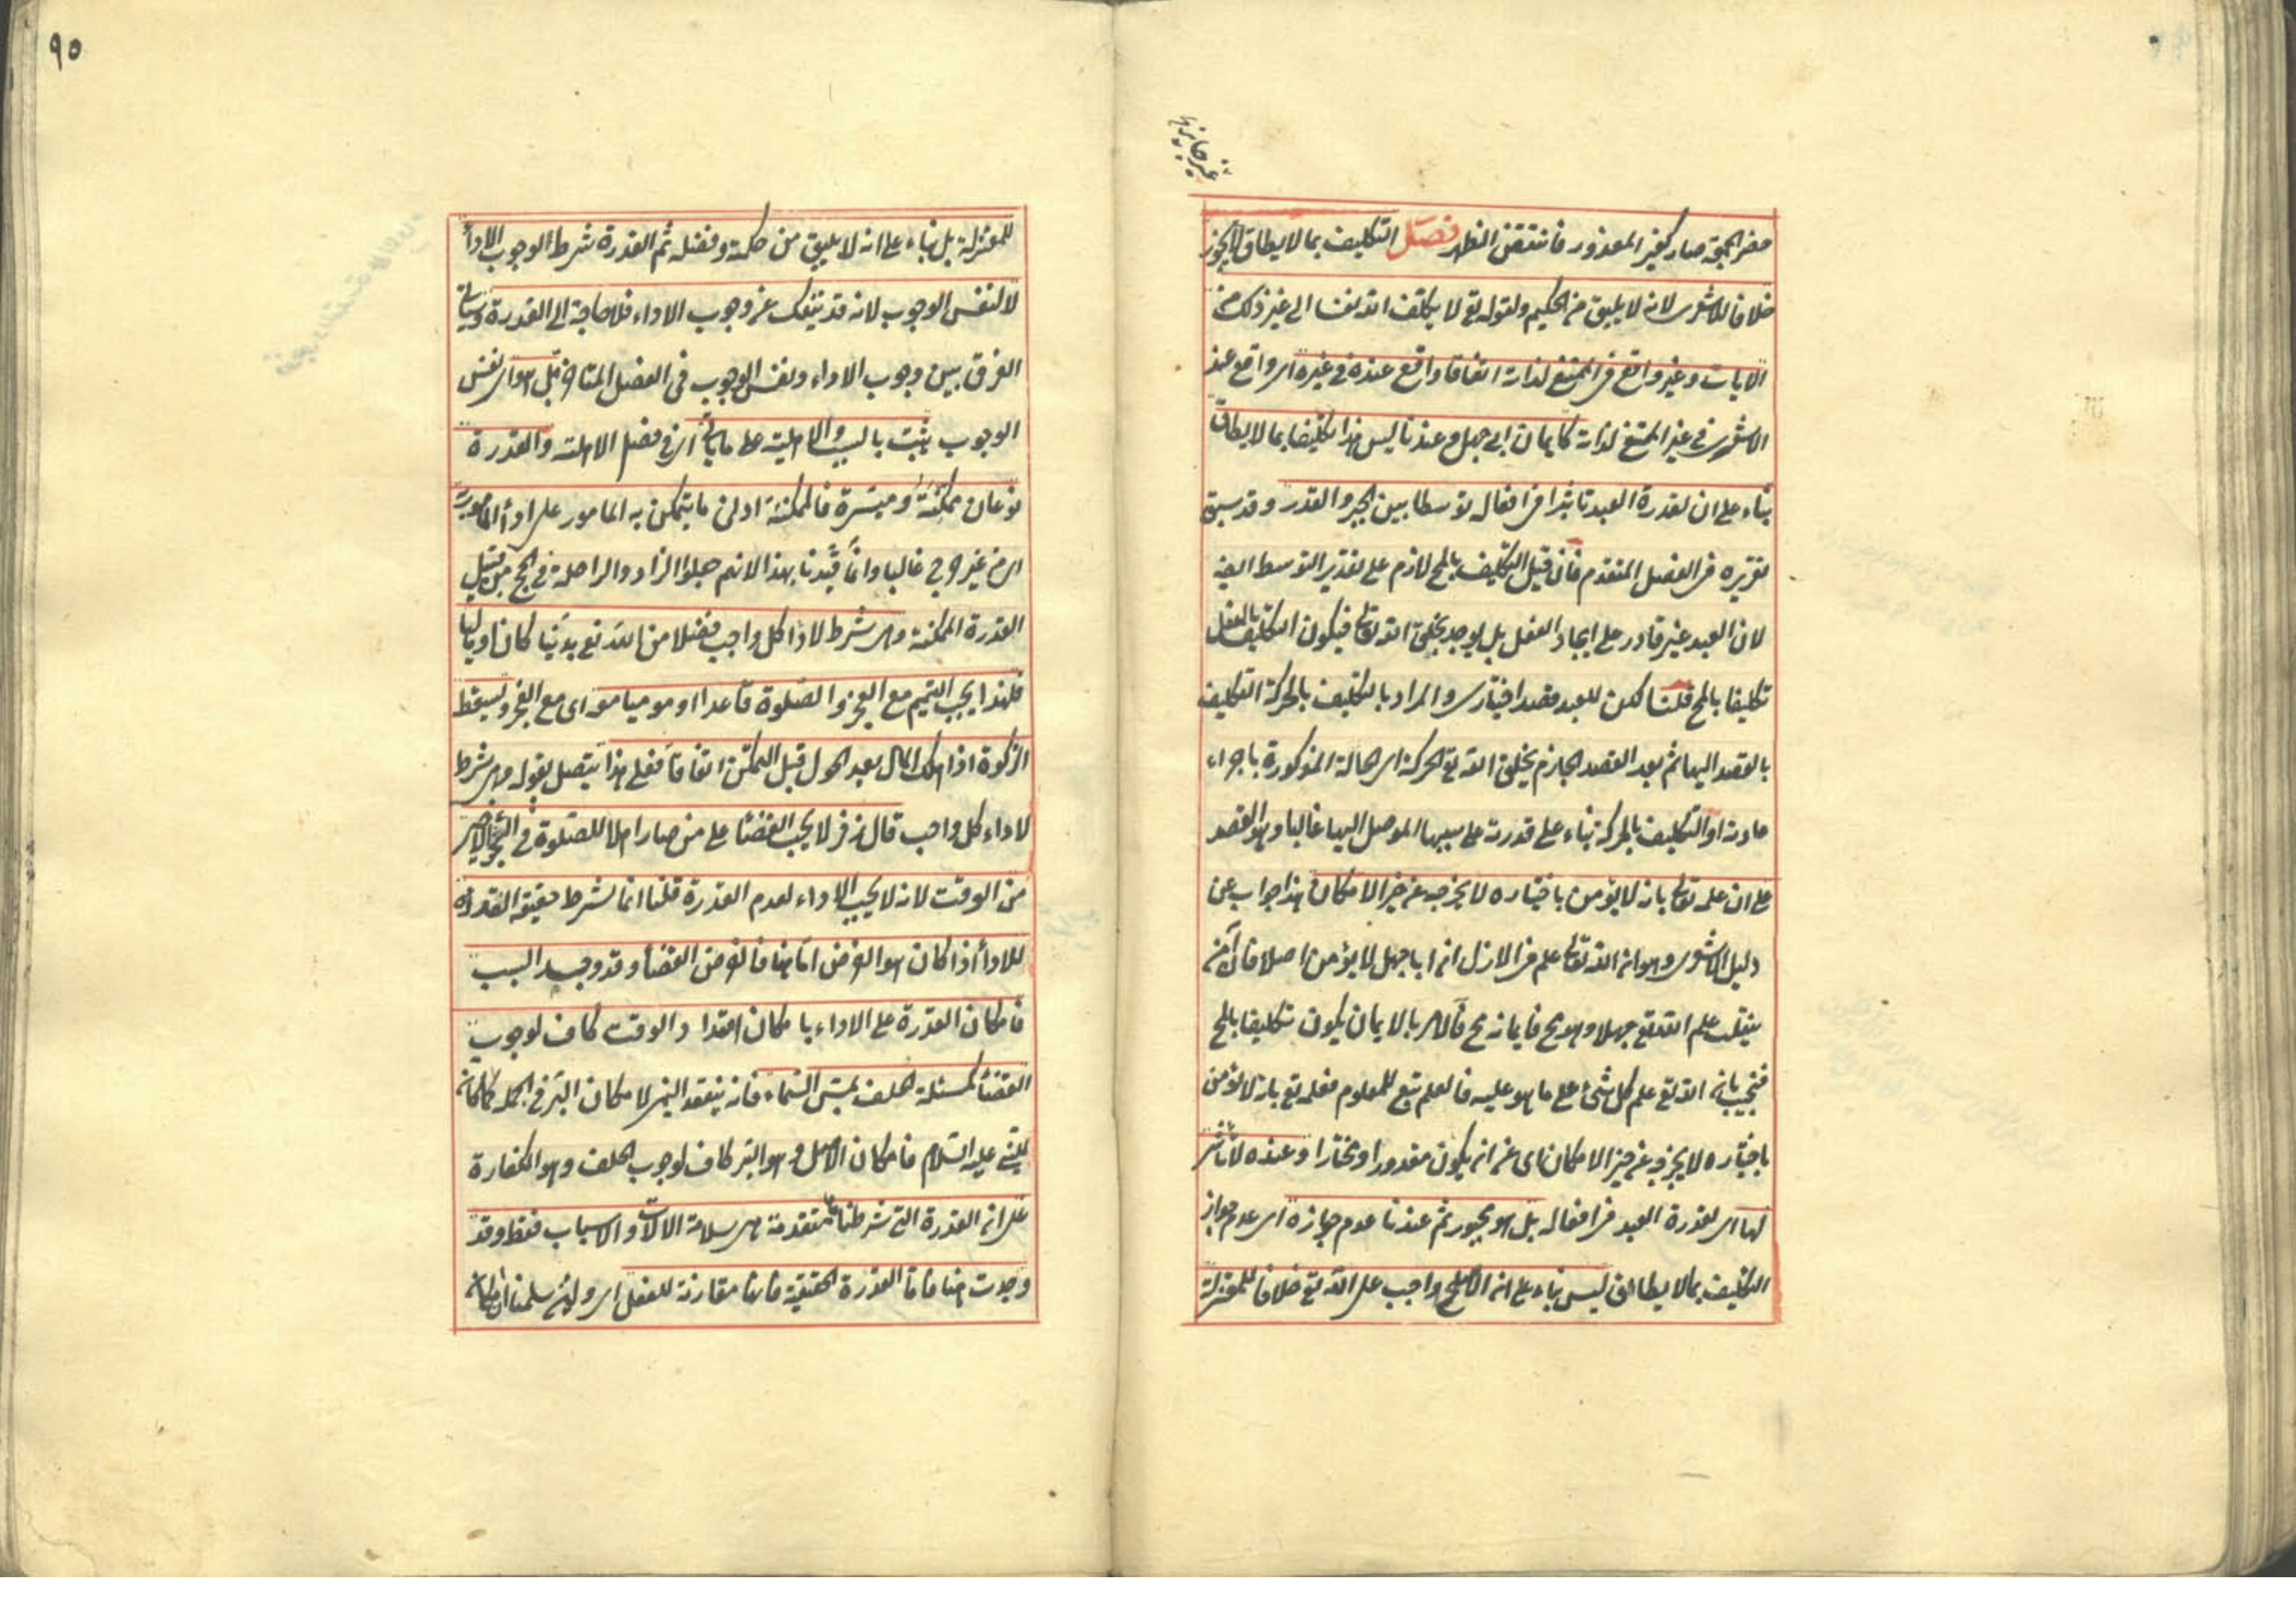 حضر الجمعة صار كغير المعذور فانتقض الظهر فصل التكليف بما لا يطاق لا يجوز
خلافا للاشعرى لانه لا يليق من الحكيم ولقوله تع لا يكلف الله نفسا الى غير ذلك من
الايات وغير واقع فى الممتنع لذاته اتفاقا واقع عنده فى غيره اى واقع عند
الاشعرى فى غير الممتنع لذاته كايمان ابى جهل وعندنا ليس هذا تكليفا بما لا يطاق
بناء على ان لقدرة العبد تاثيرا فى افعاله توسطا بين الجبر والقدر وقد سبق
تقريره فى الفصل المتقدم فان قيل التكليف بالمح لازم على تقدير التوسط ايضا
لان العبد غير قادر على ايجاد الفعل بل يوجد بخلق الله تعالى فيكون التكليف بالفعل
تكليفا بالمح قلنا لكن للعبد قصد اختيارى والمراد بالتكليف بالحركة التكليف
بالقصد اليها ثم بعد القصد الجازم يخلق الله تع الحركة اى الحالة المذكورة باجراء
عادته او التكليف بالحركة بناء على قدرته على سببها الموصل اليها غالبا وهو القصد
على ان علمه تعالى بانه لا يؤمن باختياره لا يخرجه عن حيز الامكان هذا جواب عن
دليل الاشعرى وهو ان الله تعالى علم فى الازل ان ابا جهل لا يؤمن اصلا فان آمن
ينقلب علم الله تع جهلا وهو مح فايمانه مح فالامر بالايمان يكون تكليفا بالمح
فنجيب بان الله تع علم كل شئ على ما هو عليه فالعلم تبع للمعلوم فعلمه تع بانه لا يؤمن
باختياره لا يخرجه عن حيز الامكان اى عن ان يكون مقدورا ومختارا وعنده لا تاثير
لها اى لقدرة العبد فى افعاله بل هو مجبور ثم عندنا عدم جوازه اى عدم جواز
التكليف بما لا يطاق ليس بناء على ان الاصلح واجب على الله تع خلافا للمعتزلة
٩٥
للمعتزلة بل بناء على انه لا يليق من حكمته وفضله ثم القدرة شرط لوجوب الاداء
لا لنفس الوجوب لانه قد ينفك عن وجوب الاداء فلا حاجة الى القدرة وسياتى
الفرق بين وجوب الاداء ونفس الوجوب فى الفصل المتاخر بل هو اى نفس
الوجوب يثبت بالسبب والاهلية على ما ياتى اى فى فصل الاهلية والقدرة
نوعان ممكنة وميسرة فالممكنة ادنى ما يتمكن به المامور على اداء المامور به
اى من غير حرج غالبا وانما قيدنا بهذا لانهم جعلوا الزاد والراحلة فى الحج من قبيل
القدرة الممكنة وهى شرط لاداء كل واجب فضلا من الله تع بدنيا كان او ماليا
فلهذا يجب التيمم مع العجز والصلوة قاعدا او موميا معه اى مع العجز ويسقط
الزكوة اذا هلك المال بعد الحول قبل التمكن اتفاقا فعلى هذا يتصل بقوله وهى شرط
لاداء كل واجب قال زفر لا يجب القضاء على من صار اهلا للصلوة فى الجزء الاخير
من الوقت لانه لا يجب الاداء لعدم القدرة قلنا انما يشترط حقيقة القدرة
للاداء اذا كان هو الفرض اما هنا فالفرض القضاء وقد وجد السبب
فامكان القدرة على الاداء بامكان امتداد الوقت كاف لوجوب
القضاء كمسئلة الحلف بمس السماء فانه ينعقد اليمين لامكان البر فى الجملة كما كان
للنبى عليه السلام فامكان الاصل وهو البر كاف لوجوب الخلف وهو الكفارة
على ان القدرة التى شرطناها متقدمة هى سلامة الالات والاسباب فقط وقد
وجدت هنا فاما القدرة الحقيقية فانها مقارنة للفعل اى ولئن سلمنا ان امكان